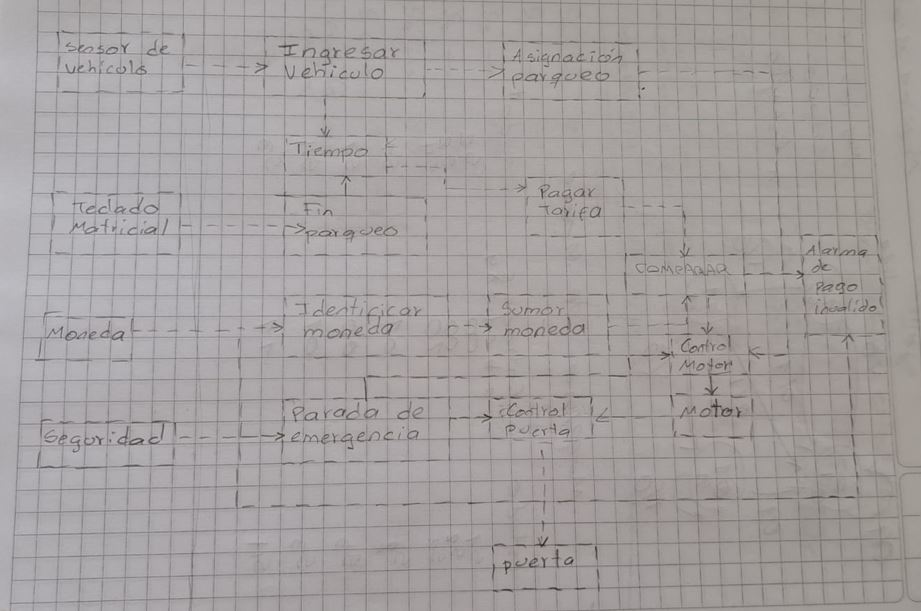 Sensor de
vehiculo
Ingresar
Vehiculo
Asignación
parqueo
Tiempo
Teclado
Matricial
Fin
parqueo
Pagar
Tarifa
Comparar
Alarma
de
pago
invalido
Moneda
Identificar
moneda
Sumar
moneda
Control
Motor
Seguridad
Parada de
emergencia
Control
puerta
Motor
puerta